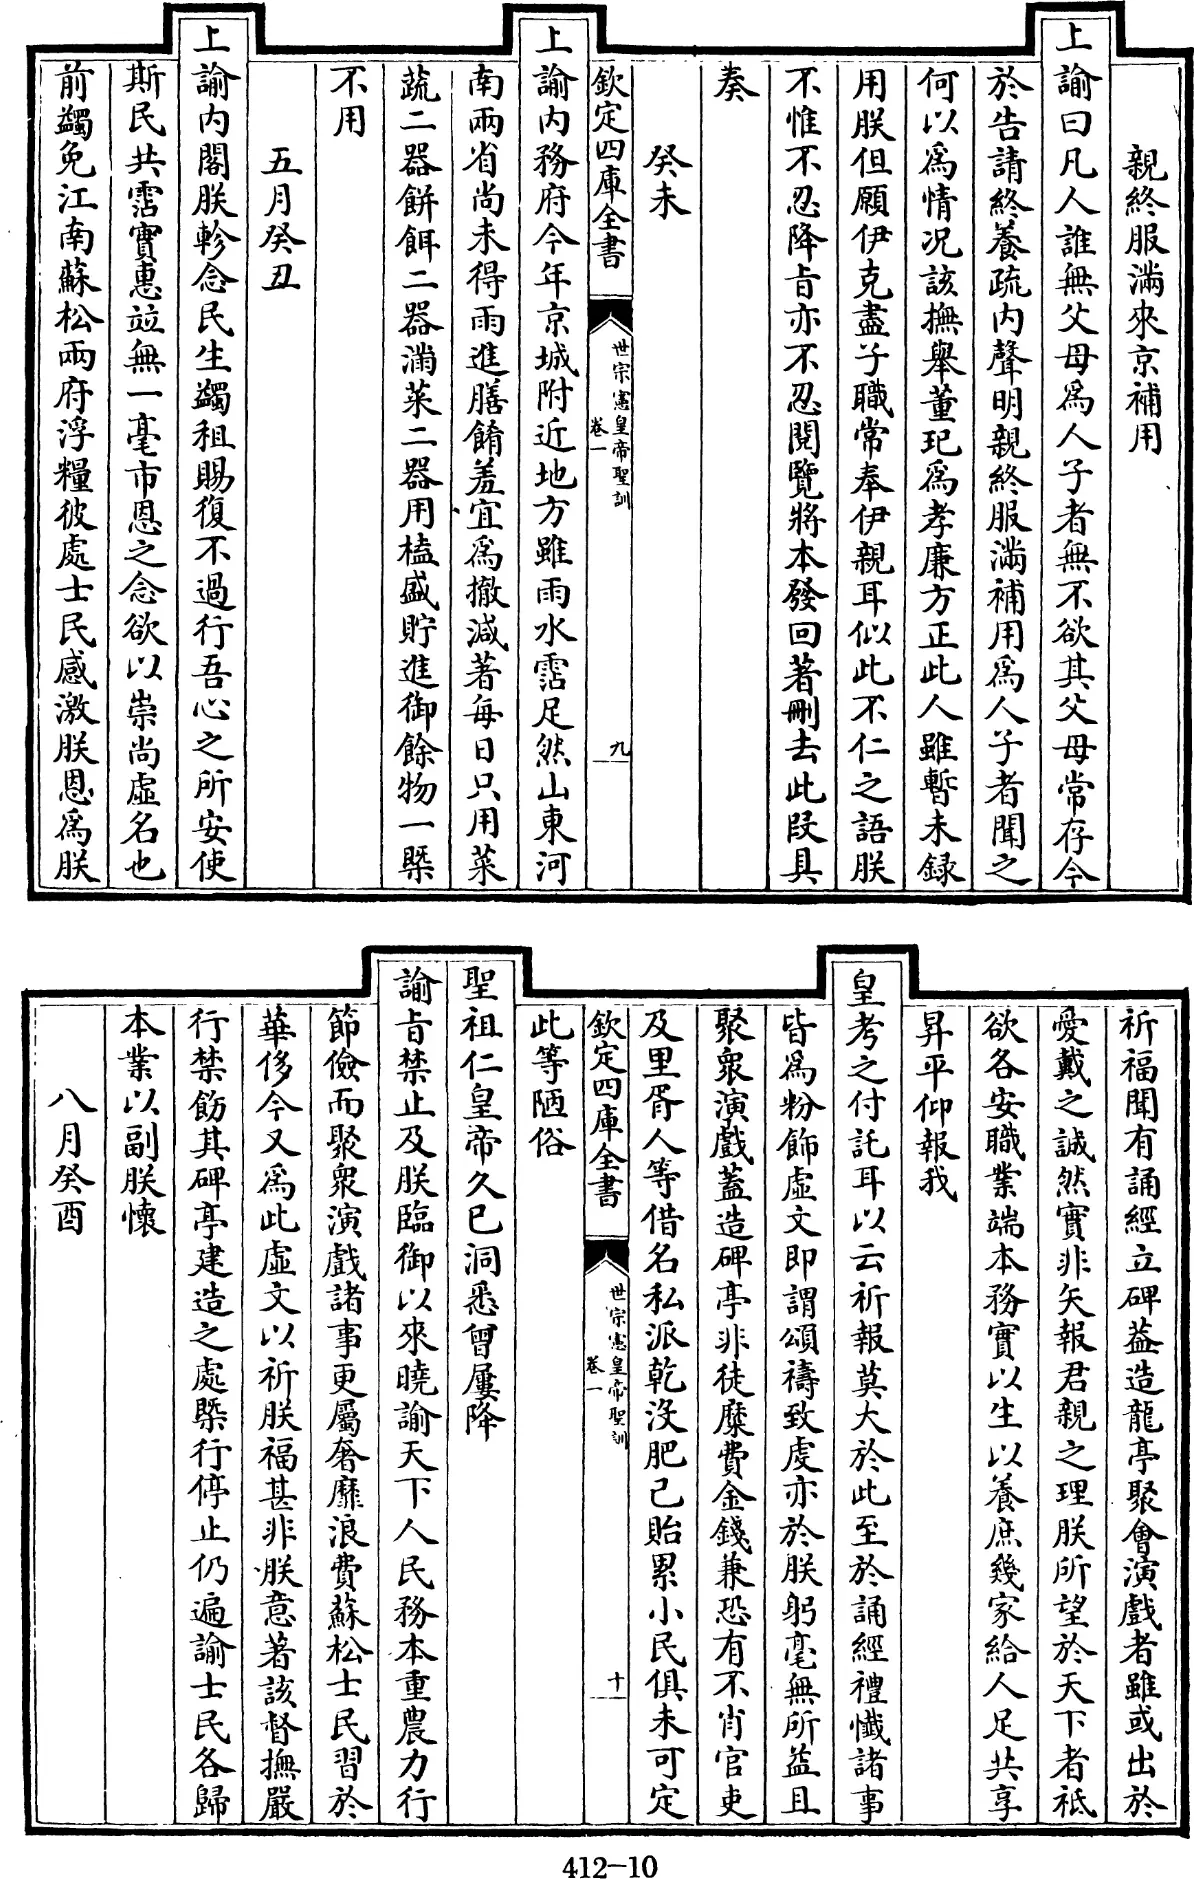 親終服滿來京補用
上諭曰凡人誰無父母爲人子者無不欲其父母常存今
於告請終養疏内聲明親終服滿補用爲人子者聞之
何以爲情况該撫舉董玘爲孝廉方正此人雖暫未録
用朕但願伊克盡子職常奉伊親耳似此不仁之語朕
不惟不忍降旨亦不忍閱覽將本發回著刪去此段具
奏
癸未
欽定四庫全書
世宗憲皇帝聖訓
卷一
九
上諭内務府今年京城附近地方雖雨水霑足然山東河
南兩省尚未得雨進膳餚羞宜爲撤減著每日只用菜
蔬二器餅餌二器滿菜二器用榼盛貯進御餘物一槩
不用
五月癸丑
上諭内閣朕軫念民生蠲租賜復不過行吾心之所安使
斯民共霑實惠竝無一毫市恩之念欲以崇尚虛名也
前蠲免江南蘇松兩府浮糧彼處士民感激朕恩爲朕
祈福聞有誦經立碑葢造龍亭聚會演戲者雖或出於
愛戴之誠然實非矢報君親之理朕所望於天下者祗
欲各安職業端本務實以生以養庶幾家給人足共享
昇平仰報我
皇考之付託耳以云祈報莫大於此至於誦經禮懺諸事
皆爲粉飾虛文即謂頌禱致虔亦於朕躬毫無所益且
聚衆演戲蓋造碑亭非徒糜費金錢兼恐有不肖官吏
及里胥人等借名私派乾没肥己貽累小民俱未可定
欽定四庫全書
世宗憲皇帝聖訓
卷一
十
此等陋俗
聖祖仁皇帝久已洞悉曾屢降
諭旨禁止及朕臨御以來曉諭天下人民務本重農力行
節儉而聚衆演戲諸事更屬奢靡浪費蘇松士民習於
華侈今又爲此虛文以祈朕福甚非朕意著該督撫嚴
行禁飭其碑亭建造之處槩行停止仍遍諭士民各歸
本業以副朕懷
八月癸酉
412-10